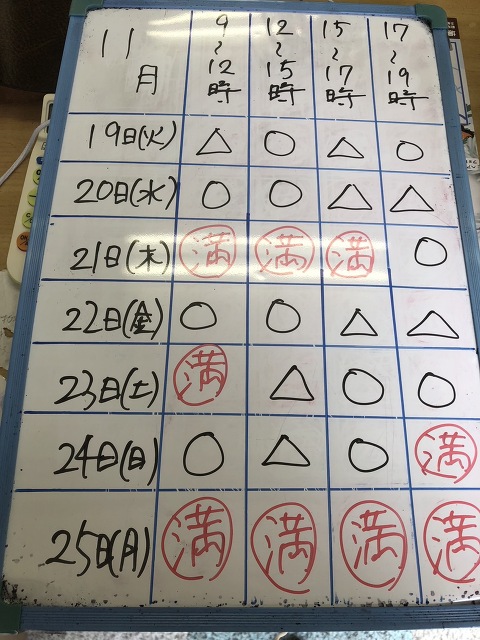 11月 9~12時 12~15時 15~17時 17~19時
19日(火) △ ○ △ ○
20日(水) ○ ○ △ △
21日(木) 満 満 満 ○
22日(金) ○ ○ △ △
23日(土) 満 △ ○ ○
24日(日) ○ △ ○ 満
25日(月) 満 満 満 満